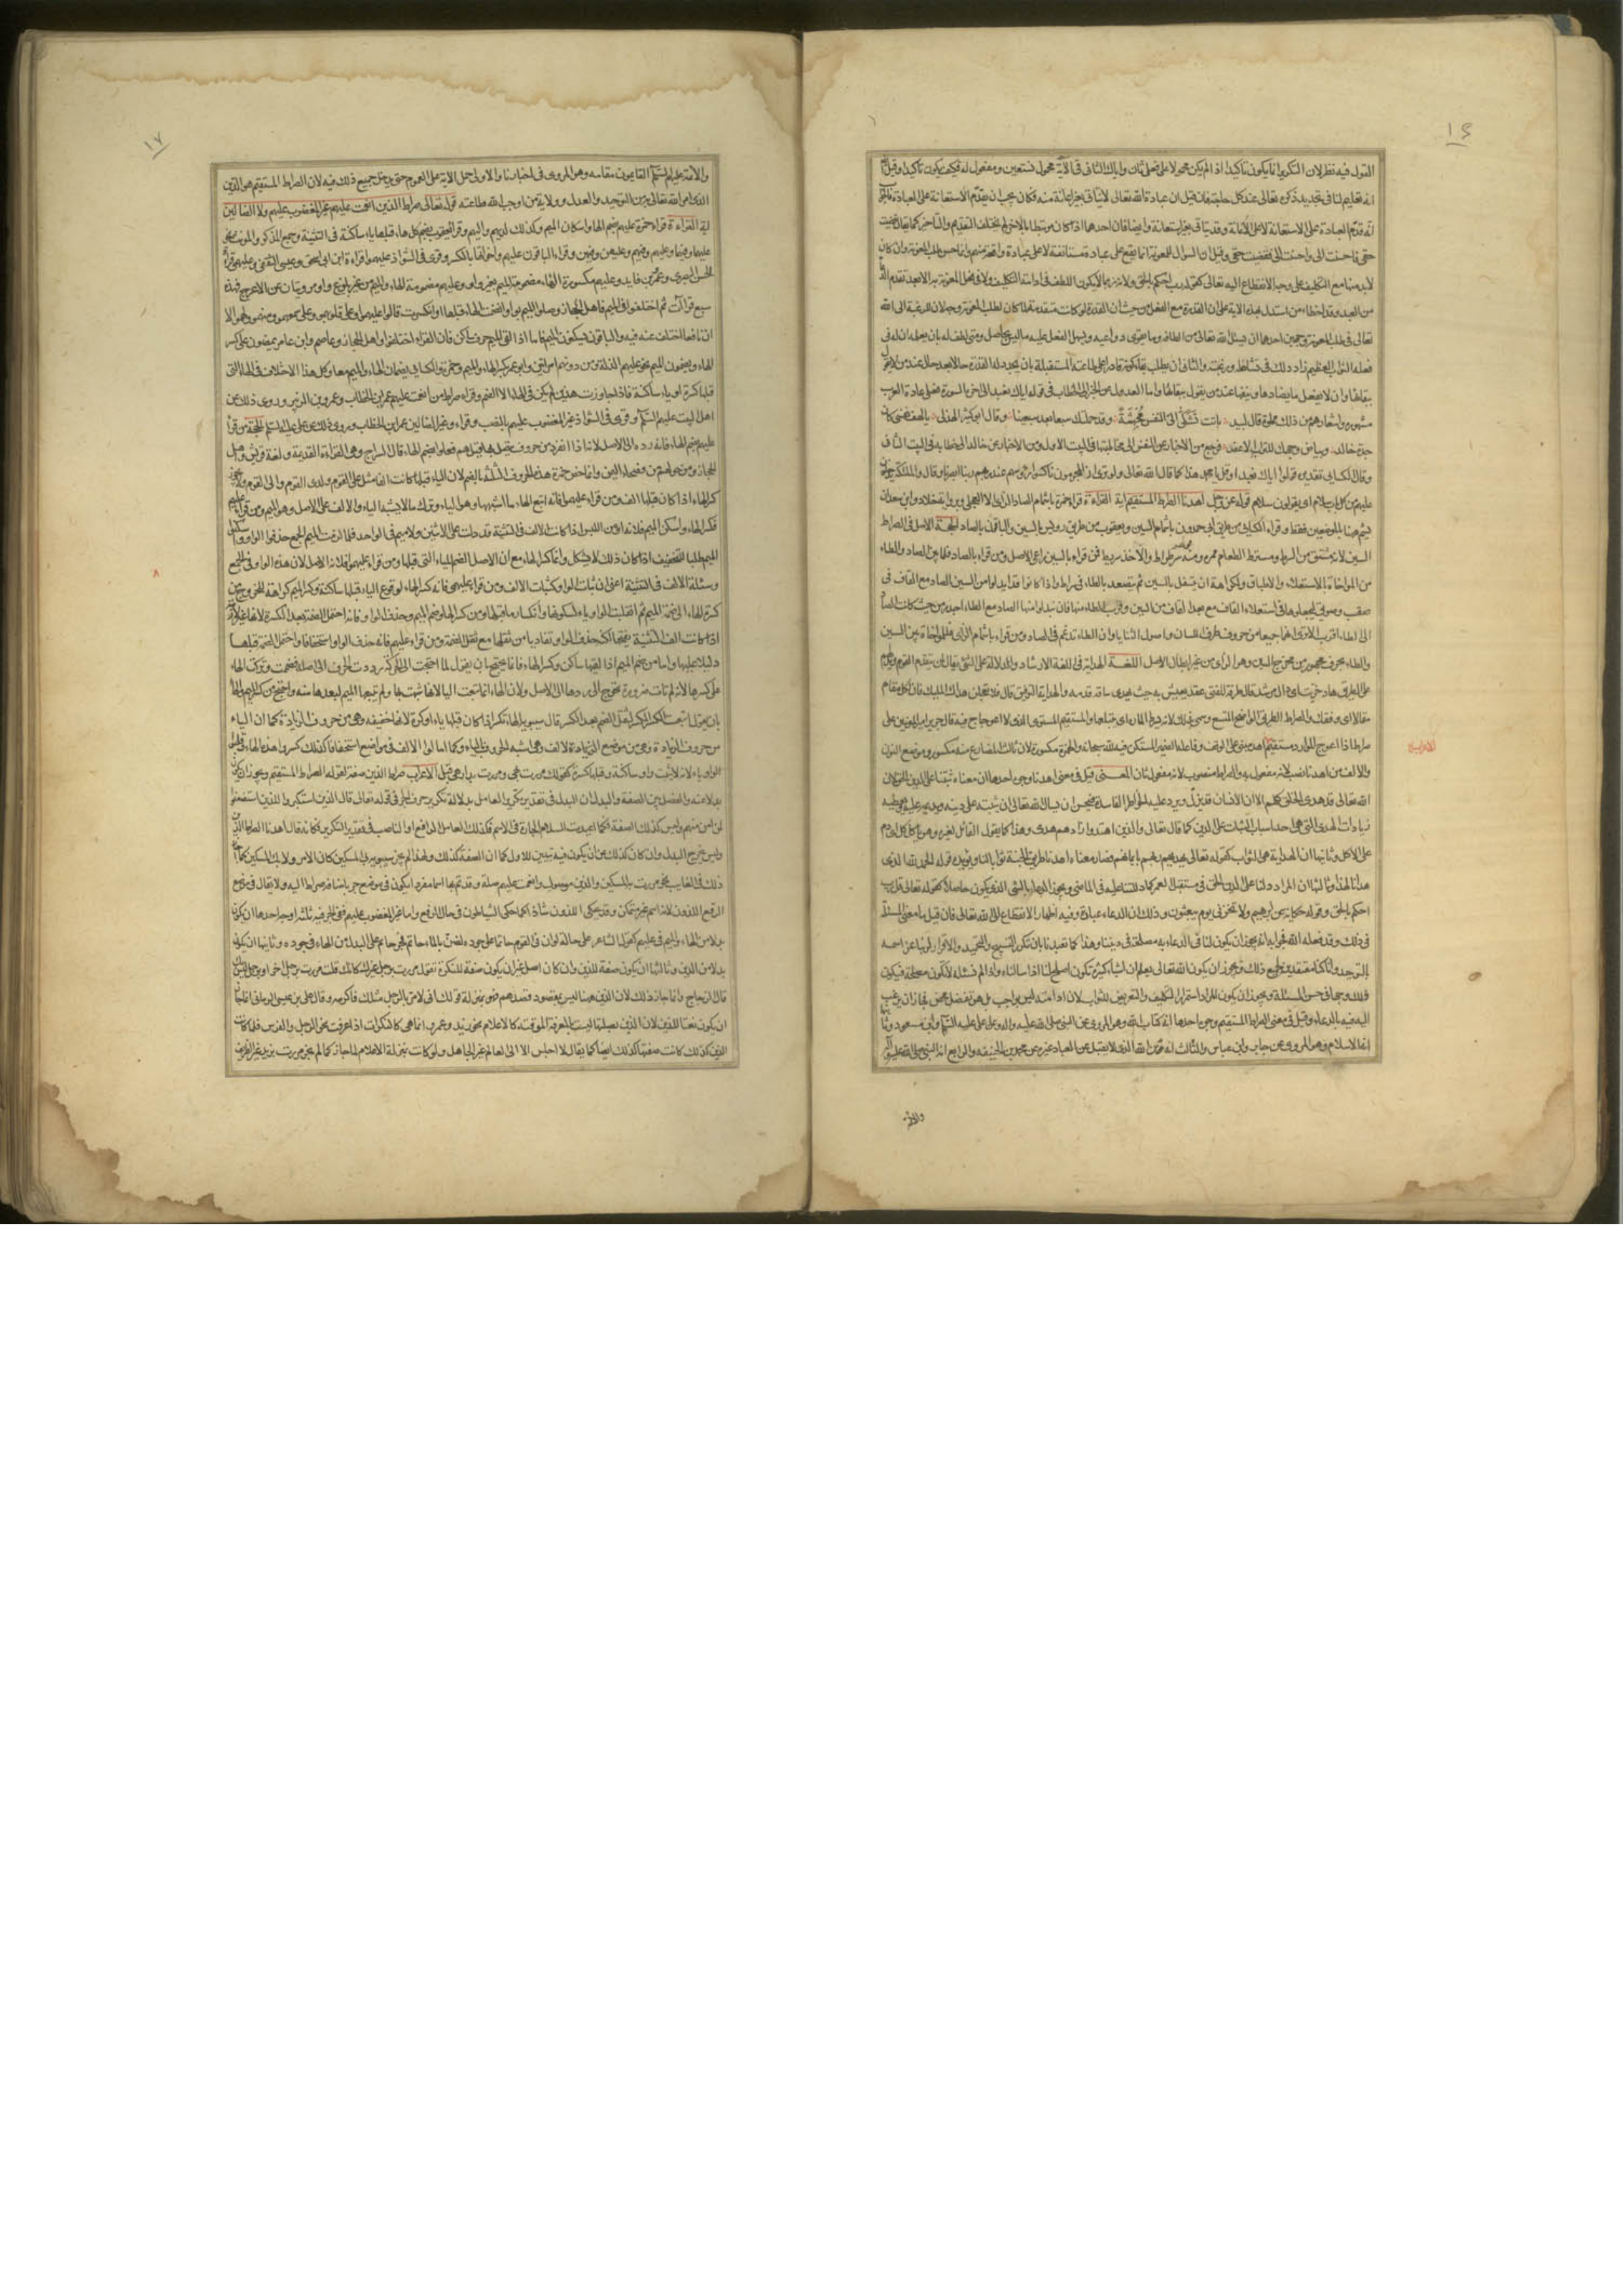 ١٦
القول فيه نظر لان التكرير انما يكون تاكيدا اذا لم يكن محمولا على فعل ثان واياك الثانى فى الآية محمول نستعين ومفعول له فكيف يكون تاكيدا وقيل
انه تعليم لنا فى تجديد ذكره تعالى عند كل حاجة فان قيل ان عبادة الله تعالى لا تتأتى بغير اعانة منه فكان يجب ان يقدم الاستعانة على العبادة فالجواب
انه قدم العبادة على الاستعانة لا على الاعانة وقد تاتى بغير استعانة وايضا فان احدهما اذا كان مرتبطا بالاخر لم يختلف التقديم والتاخير كما يقال قضيت
حقى فاحسنت الى واحسنت الى فقضيت حقى وقيل ان السؤال للمعونة انما يقع على عبادة مستانفة لا على عبادة واقعة منهم وانما حسن طلب المعونة وان كان
لا بد منها مع التكليف على وجه الانقطاع اليه تعالى كقوله رب احكم بالحق ولانه ربما لا يكون اللطف فى ادامة التكليف ولا فى فعل المعونة به الا بعد تقدم الدعاء
من العبد وقد اخطاء من استدل بهذه الاية على ان القدرة مع الفعل من حيث ان القدرة لو كانت متقدمة لما كان لطلب المعونة وجه لان للرغبة الى الله
تعالى فى طلب المعونة وجهين احدهما ان يسئل الله تعالى من الطافه وما يقوى دواعيه ويسهل الفعل عليه ما ليس بحاصل ومتى لطف له بان يعلمه ان له فى
فعله الثواب العظيم زاد ذلك فى نشاطه ورغبته والثانى ان يطلب بقاء كونه قادرا على طاعته المستقبلة بان يجدد له القدرة حالا بعد حال عند من لا يقول
ببقائها وان لا يفعل ما يضادها وينفيها عند من يقول ببقائها واما العدول عن الخبر الى الخطاب فى قوله اياك نعبد الى اخر السورة فعلى عادة العرب
مشهوره واشعارهم من ذلك مملوة قال لبيد باتت تشكى الى النفس مجهشة وقد حملتك سبعا بعد سبعينا وقال ابو كبير الهذلى يا لهف نفسى كان
جدة خالد وبياض وجهك للتراب الاعفر فرجع من الاخبار عن النفس الى مخاطبتها فى البيت الاول ومن الاخبار عن خالد الى خطابه فى البيت الثانى
وقال الكسائى تقديره قولوا اياك نعبد او قل يا محمد هذا كما قال الله تعالى ولو ترى اذ المجرمون ناكسوا رؤسهم عند ربهم ربنا ابصرنا وقال والملئكة يدخلون
عليهم من كل باب سلام اى يقولون سلام قوله عز وجل اهدنا الصراط المستقيم اية القراءة قراء حمزة باشمام الصاد الزاى
هيهنا بالموضعين فقط وقراء الكسائى من طريق ابى حمدون باشمام السين ويعقوب من طريق رويس بالسين والباقون بالصاد الحجة الاصل فى الصراط
السين لانه مشتق من السرط ومسترط الطعام ممره
من المواخاة بالاستعلاء والاطباق ولكراهة ان يتسفل بالسين ثم يتصعد بالطاء فى سراط
الى الطاء
والطاء بحرف مجهور من مخرج السين وهو الزاى من غير ابطال الاصل اللغة الهداية فى اللغة الارشاد والدلالة على الشئ يقال لمن يتقدم القوم ويدلهم
على الطريق هاد خريت اى دال مرشد قال طرفة للفتى عقل يعيش به حيث تهدى ساقه قدمه والهداية التوفيق قال فلا تعجلن هداك المليك فان لكل مقام
مقالا اى وفقك والصراط الطريق الواضح المتسع وسمى بذلك لانه يسرط المارة اى يبتلعها والمستقيم المستوى الذى لا اعوجاج فيه قال جرير امير المؤمنين على
صراط اذا اعوج الموارد مستقيم الاعراب اهدنا مبنى على الوقف وفاعله الضمير المستكن فيه لله سبحانه والهمزة مكسورة لان ثالث المضارع منه مكسور وموضع النون
والالف من اهدنا نصب لانه مفعول به والصراط منصوب لانه مفعول ثان المعنى قيل فى معنى اهدنا وجوه احدها ان معناه ثبتنا على الدين الحق لان
الله تعالى قد هدى الخلق كلهم الا ان الانسان قد يزل ويرد عليه الخواطر الفاسدة فيحسن ان يسال الله تعالى ان يثبته على دينه ويديمه عليه ويعطيه
زيادات الهدى التى هى احد اسباب الثبات على الدين كما قال تعالى والذين اهتدوا زادهم هدى وهذا كما يقول القائل لغيره وهو ياكل كل اى دم
على الاكل وثانيها ان الهداية هى الثواب كقوله تعالى يهديهم ربهم بايمانهم فصار معناه اهدنا طريق الجنة ثوابا لنا ويؤيده قوله الحمد لله الذى
هدانا لهذا وثالثها ان المراد دلنا على الدين الحق فى مستقبل العمر كما دللتنا عليه فى الماضى ويجوز الدعاء بالشئ الذى يكون حاصلا كقوله تعالى قل رب
احكم بالحق وقوله حكاية عن ابرهيم ولا تخزنى يوم يبعثون وذلك ان الدعاء عبادة وفيه اظهار الانقطاع الى الله تعالى فان قيل ما معنى المسئلة
فى ذلك وقد فعله الله فجوابه انه يجوز ان يكون لنا فى الدعاء به مصلحة فى ديننا وهذا كما تعبدنا بان نكرر التسبيح والتحميد والاقرار لربنا عز اسمه
بالتوحيد وان كنا معتقدين لجميع ذلك ويجوز ان يكون الله تعالى يعلم ان اشياء كثيرة تكون اصلح لنا اذا سالناه واذا لم نسئله لا تكون مصلحة فيكون
ذلك وجها فى حسن المسئلة ويجوز ان يكون المراد استمرار التكليف والتعريض للثواب لان ادامته ليس بواجب بل هو تفضل محض فجاز ان يرغب
اليه فيه بالدعاء وقيل فى معنى الصراط المستقيم وجوه احدها انه كتاب الله وهو المروى عن النبى صلى الله عليه واله وعن على عليه السلم وابن مسعود وثانيها
انه الاسلام وهو المروى عن جابر وابن عباس والثالث انه دين الله الذى لا يقبل من العباد غيره عن محمد بن الحنيفه والرابع انه النبى صلى الله عليه واله
والائمة
١٧
والائمة عليهم السلم القايمون مقامه وهو المروى فى اخبارنا والاولى حمل الاية على العموم حتى يدخل جميع ذلك فيه لان الصراط المستقيم هو الدين
الذى امر الله تعالى به من التوحيد والعدل وولاية من اوجب الله طاعته قوله تعالى صراط الذين انعمت عليهم غير المغضوب عليهم ولا الضالين
اية القراءة قراء حمزة عليهم بضم الهاء واسكان الميم وكذلك لديهم واليهم وقراء يعقوب بضم كل هاء قبلها ياء ساكنة فى التثنية وجمع المذكر والمونث نحو
عليهما وفيهما وعليهم وفيهم وعليهن وفيهن وقراء الباقون عليهم واخواتها بالكسر وقرى فى الشواذ عليهموا قراءة ابن ابى اسحق وعيسى الثقفى وعليهمى قراءة
الحسن البصرى وعمرو بن فايد وعليهم مكسورة الهاء مضمومة الميم بغير واو وعليهم مضمومة الهاء والميم من غير بلوغ واو مرويتان عن الاعرج فهذه
سبع قراآت ثم اختلفوا فى الميم فاهل الحجاز وصلوا الميم بواو انضمت الهاء قبلها او انكسرت قالوا عليهموا وعلى قلوبهموا وعلى سمعهموا ومنهموا ولهموا الا
ان نافعا اختلف عنه فيه والباقون بسكون الميم فاما اذا لقى الميم حرف ساكن فان القراء اختلفوا فاهل الحجاز وعاصم وابن عامر يضمون على كسر
الهاء ويضمون الميم نحو عليهم الذلة ومن دونهم امراتين وابو عمرو يكسر الهاء والميم وحمزة والكسائى يضمان الهاء والميم معا وكل هذا الاختلاف فى الهاء التى
قبلها كسرة او ياء ساكنة فاذا جاوزت هذين لم يكن فى الهاء الا الضم وقراء صراط من انعمت عليهم عمر بن الخطاب وعمرو بن الزبير وروى ذلك عن
اهل البيت عليهم السلم وقرى فى الشواذ غير المغضوب عليهم بالنصب وقراء وغير الضالين عمر بن الخطاب وروى ذلك عن على عليه السلم الحجة من قرأ
عليهم بضم الهاء فانه رده الى الاصل لانها اذا انفردت من حروف يتصل بها قيل هم فعلوا بضم الهاء قال السراج وهى القراءة القديمة ولغة قريش واهل
الحجاز ومن حولهم من فصحاء اليمن وانما خص حمزة هذه الحروف الثلثة بالضم لان الياء قبلها كانت الفا مثل على القوم ولدى القوم والى القوم
كسر الهاء اذا كان قبلها الف ومن قراء عليهموا فانه اتبع الهاء ما اشبهها وهو الياء وترك ما لا يشبه الياء والالف على الاصل وهو الميم ومن قراء عليهم
فكسر الهاء واسكن الميم فلانه امن اللبس اذ كانت الالف فى التثنية قد دلت على الاثنين ولا ميم فى الواحد فلما لزمت الميم الجمع حذفوا الواو واسكنوا
الميم طلبا للتخفيف اذا كان ذلك لا يشكل وانما كسر الهاء مع ان الاصل الضم للياء التى قبلها ومن قراء عليهموا فلانه الاصل لان هذه الواو فى الجمع
وسيلة الالف فى التثنية اعنى ان ثبات الواو كثبات الالف ومن قراء عليهمى فانه كسر الهاء لوقوع الياء قبلها ساكنة وكسر الميم كراهة للخروج من
كسرة الهاء الى ضمة الميم ثم انقلبت الواو ياء لسكونها وانكسار ما قبلها ومن كسر الهاء وضم الميم وحذف الواو فانه احتمل الضمة بعد الكسرة
اذا كانت الف التثنية تفتحها لكنه حذف الواو تفاديا من ثقلها مع ثقل الضمة ومن قراء عليهم فانه حذف الواو استخفافا واحتمل الضمة قبلها
دليلا عليها واما من ضم الميم اذا لقيها ساكن وكسر الهاء فانما يحتج بان يقول لما احتجت الى الحركة رددت الحرف الى اصله فضممت وتركت الهاء
على كسرها لانه لم تات ضرورة تحوج الى ردها الى الاصل ولان الهاء انما تبعت الياء لانها شبهت بها ولم تتبعها الميم لبعدها منه واحتج من كسر الميم والهاء
بان يقول اتبعت الكسر الكسر لثقل الضم بعد الكسر قال سيبويه الهاء تكسر اذا كان قبلها ياء او كسرة لانها خفيفة وهى من حروف الزيادة كما ان الياء
من حروف الزيادة وهى من موضع الالف وهى اشبه الحروف بالياء وكما امالوا الالف فى مواضع استخفافا كذلك كسروا هذه الهاء وقلبوا
الواو ياء لانه لا يثبت واو ساكنة وقبلها كسرة كقولك مررت بهى ومررت بدارهى قبل الاعراب صراط الذين صفة لقوله الصراط المستقيم ويجوز ان يكون
بدلا عنه والفصل بين الصفة والبدل ان البدل فى تقدير تكرير العامل بدلالة تكرير حرف الجر فى قوله تعالى قال الذين استكبروا للذين استضعفوا
لمن امن منهم وليس كذلك الصفة فكما اعيدت اللام الجارة فى الاسم فكذلك العامل الرافع او الناصب فى تقدير التكرير فكانه قال اهدنا صراط الذين
وليس يخرج البدل وان كان كذلك عن ان يكون فيه تبيين للاول كما ان الصفة كذلك ولهذا لم يجز سيبويه بى المسكين كان الامر ولا بك المسكين كما اجاز
ذلك فى الغايب نحو مررت به المسكين والذين موصول وانعمت عليهم صلة وقد تم بها اسما مفردا يكون فى موضع جر باضافة صراط اليه ولا يقال فى موضع
الرفع اللذون لانه اسم غير متمكن وقد حكى اللذون شاذا كما حكى الشياطون فى حال الرفع واما غير المغضوب عليهم ففى الجر فيه ثلثة اوجه احدها ان يكون
بدلا من الهاء والميم فى عليهم كقول الشاعر على حالة لو ان فى القوم حاتما على جوده لضن بالماء حاتم فجر حاتم على البدل من الهاء فى جوده وثانيها ان يكون
بدلا من الذين وثالثها ان يكون صفة للذين وان كان اصل غير ان يكون صفة للنكرة تقول مررت برجل غيرك كانك قلت مررت برجل اخر
قال الزجاج وانما جاز ذلك لان الذين ههنا ليس بمقصود قصدهم فهو بمنزلة قولك انى لامر بالرجل مثلك فاكرمه وقال على بن عيسى الرمانى انما جاز
ان يكون نعتا للذين لان الذين بصلتها ليست بالمعرفة الموقتة كالاعلام نحو زيد وعمرو وانما هى كالنكرات اذا عرفت نحو الرجل والفرس فلما كانت
الذين كذلك كانت صفتها كذلك ايضا كما يقال لا اجلس الا الى العالم غير الجاهل ولو كانت بمنزلة الاعلام لما جاز كما لم يجز مررت بزيد غير الظريف